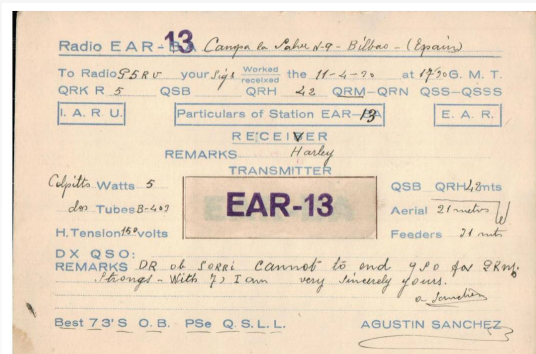 Radio EAR-13 Campa la Salve N-9 - Bilbao - (Spain)
To Radio G5RV your Sigs Worked received the 11-4-30 at 17/30 G. M. T.
QRK R 5 QSB QRH 42 QRM-QRN QSS-QSSS
I. A. R. U. Particulars of Station EAR-13 E. A. R.
RECEIVER
REMARKS Harley
TRANSMITTER
Colpitts Watts 5 QSB QRH 42 mts
dos Tubes B-403 EAR-13 Aerial 21 metros
H. Tension 150 volts Feeders 21 mts
DX QSO:
REMARKS DR ob SORRI Cannot to end QSO for
Strongs - With 73 I am very sincerely yours.
a. Sanchez
Best 73'S O. B. PSe Q. S. L. L. AGUSTIN SANCHEZ